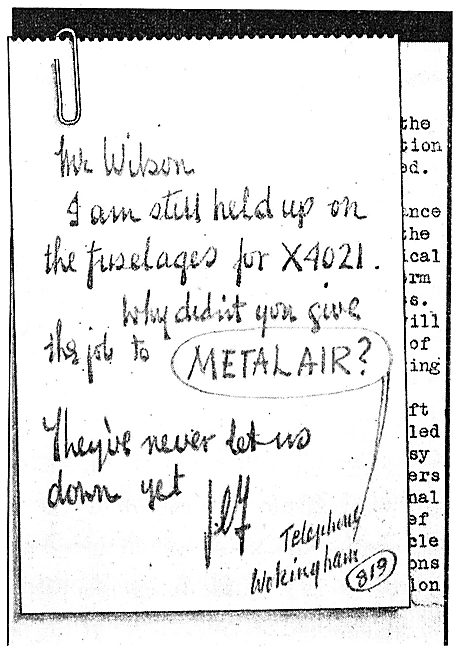 Mr Wilson
I am still held up on
the fuselages for X4021.
Why didn't you give
the job to METALAIR?
They've never let us
down yet
Telephone
Wokingham 819
the
tion
ed.
ance
the
ical
orm
s.
will
of
ing
ft
led
sy
ers
nal
ef
cle
ons
ion